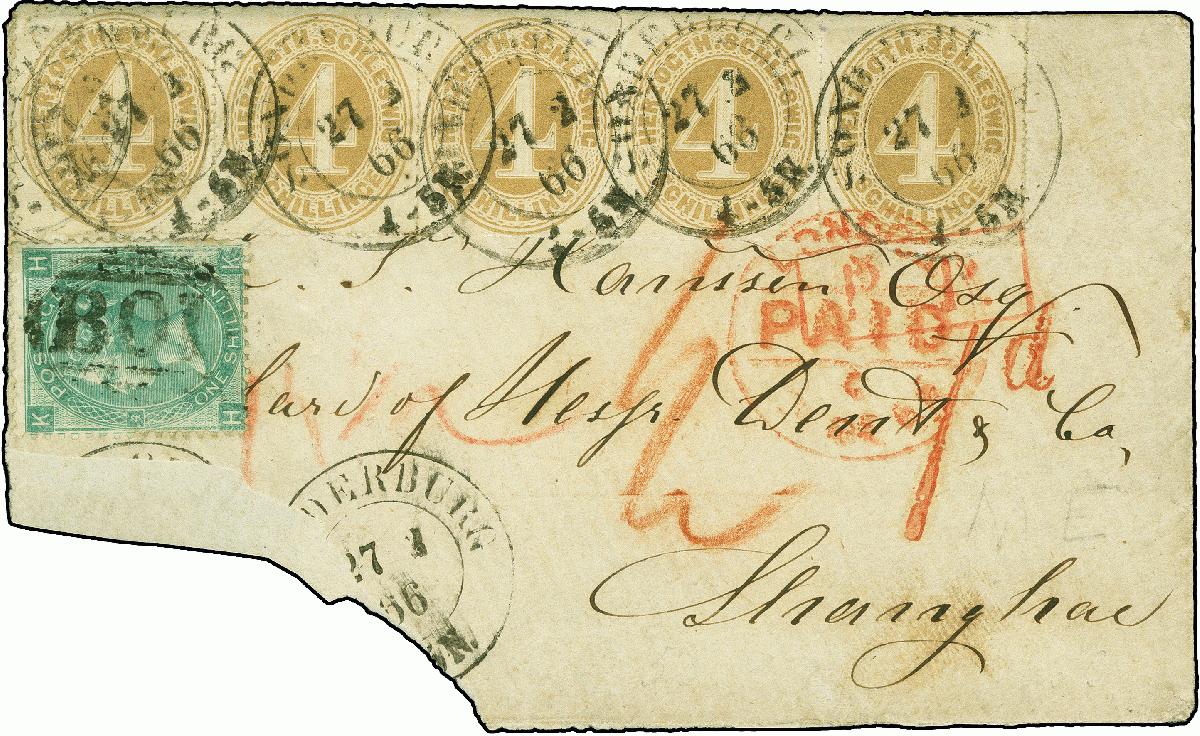 HERZOGTH. SCHLESWIG
4
SCHILLINGE
HERZOGTH. SCHLESWIG
4
SCHILLINGE
HERZOGTH. SCHLESWIG
4
SCHILLINGE
HERZOGTH. SCHLESWIG
4
SCHILLINGE
HERZOGTH. SCHLESWIG
4
SCHILLINGE
27 1
66
1-5N.
27 1
66
1-5N.
27 1
66
1-5N.
27 1
66
1-5N.
27 1
66
1-5N.
Hansen Esq
H K
ONE SHILLING
K H
B01
PAID
1d
Care of Messr. Dent & Co,
Shanghae
DERBURG
27 1
66
5N.
ME